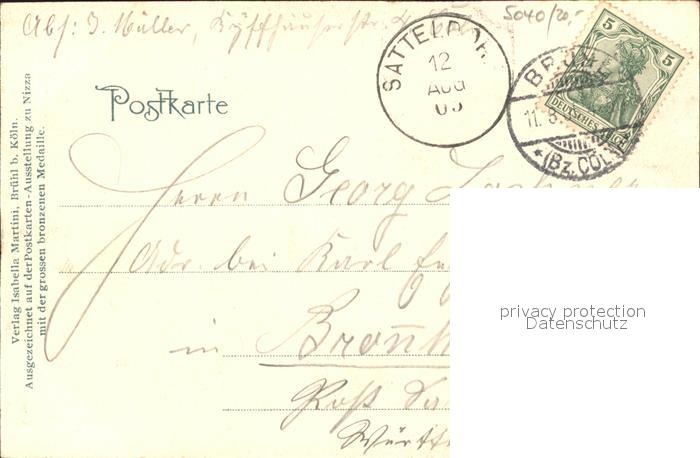 Abs: J. Müller, Kyffhäuserstr.
5040/20,-
SATTELDORF
12
AUG
05
BRÜHL
11.8.
* (Bz. CÖLN)
5 5
DEUTSCHES REICH
Postkarte
Herrn Georg
Adr. bei Karl
in Bronn
Post Sa
Württ
Verlag Isabella Martini, Brühl b. Köln.
Ausgezeichnet auf der Postkarten-Ausstellung zu Nizza
mit der grossen bronzenen Medaille.
privacy protection
Datenschutz